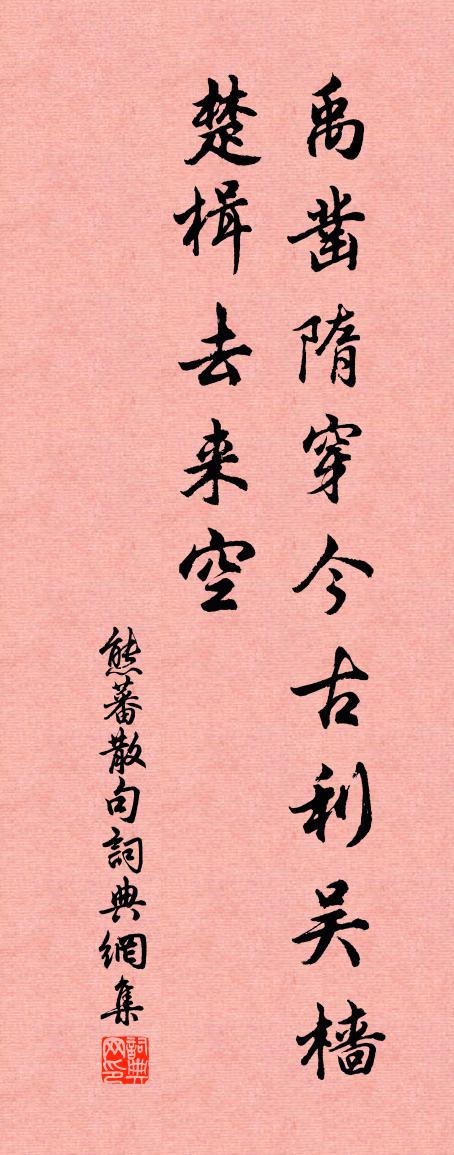 禹凿隋穿今古利吴樯
楚楫去来空
熊蕃散句詞典網集
詞典网印